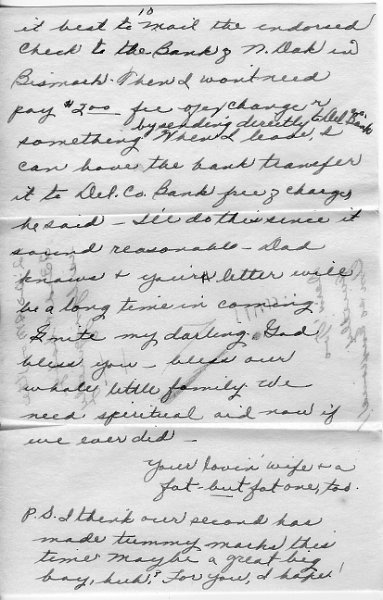 10
it best to mail the endorsed
check to the Bank of N. Dak in
Bismark. Then I won't need
pay $2.00 fee of exchange or
by sending directly to Del. Co. Bank
something. When I leave, I
can have the bank transfer
it to Del. Co. Bank free of charge,
he said - I'll do this since it
sound reasonable - Dad
knows + your letter will
be a long time in coming
G'nite my darling. God
bless you - bless our
whole little family. We
need spiritual aid now if
we ever did -
Your lovin' wife + a
fat - but fat one, too.
P.S. I think our second has
made tummy marks this
time maybe a great big
boy, huh? For you, I hope!